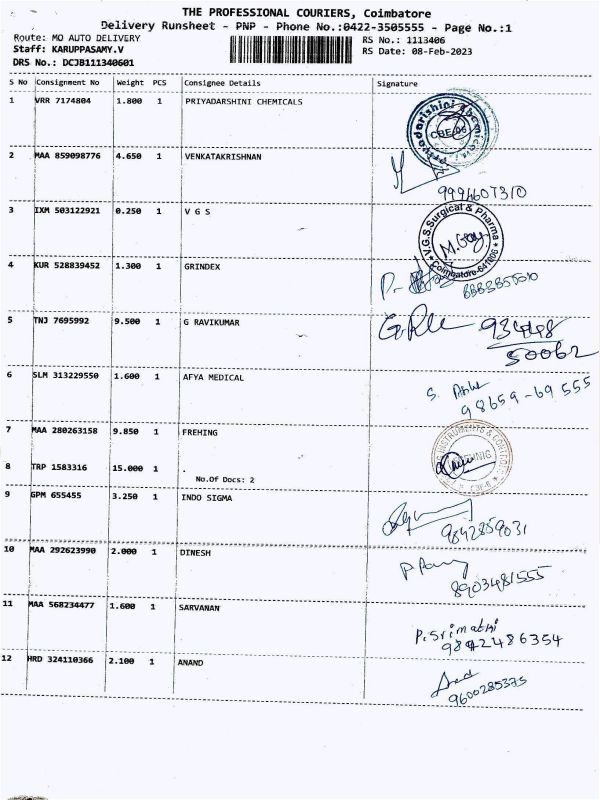 THE PROFESSIONAL COURIERS, Coimbatore
Delivery Runsheet - PNP - Phone No.:0422-3505555 - Page No.:1
Route: MO AUTO DELIVERY RS No.: 1113406
Staff: KARUPPASAMY.V RS Date: 08-Feb-2023
DRS No.: DCJB111340601
S No Consignment No Weight PCS Consignee Details Signature
1 VRR 7174804 1.800 1 PRIYADARSHINI CHEMICALS
priyadarshini chemicals
CBE-06
2 MAA 859098776 4.650 1 VENKATAKRISHNAN
9994607310
3 IXM 503122921 0.250 1 V G S
V.G.S.Surgical & Pharma
Coimbatore-641006
4 KUR 528839452 1.300 1 GRINDEX
5 TNJ 7695992 9.500 1 G RAVIKUMAR
93448
50062
6 SLM 313229550 1.600 1 AFYA MEDICAL
98659-69555
7 MAA 280263158 9.850 1 FREHING
INSTRUMENTS & CONTROLS
8 TRP 1583316 15.000 1 .
No.Of Docs: 2
9 GPM 655455 3.250 1 INDO SIGMA
9842859031
10 MAA 292623990 2.000 1 DINESH
8903481555
11 MAA 568234477 1.600 1 SARVANAN
P.Srimathi
9842486354
12 HRD 324110366 2.100 1 ANAND
9600285375